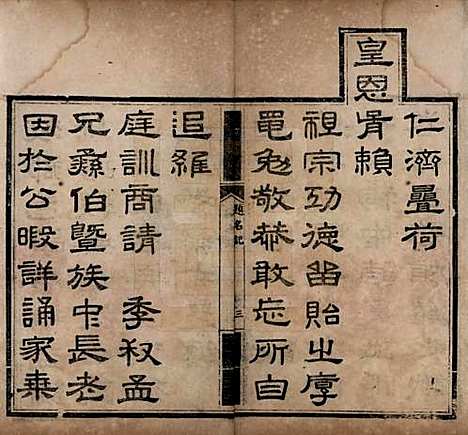 仁濟疊荷
皇恩胥賴
祖宗功德留貽之厚
黽勉敬恭敢忘所自
題名記
三
追維
庭訓商請 季叔孟
兄彝伯暨族中長老
因於公暇詳誦家乗